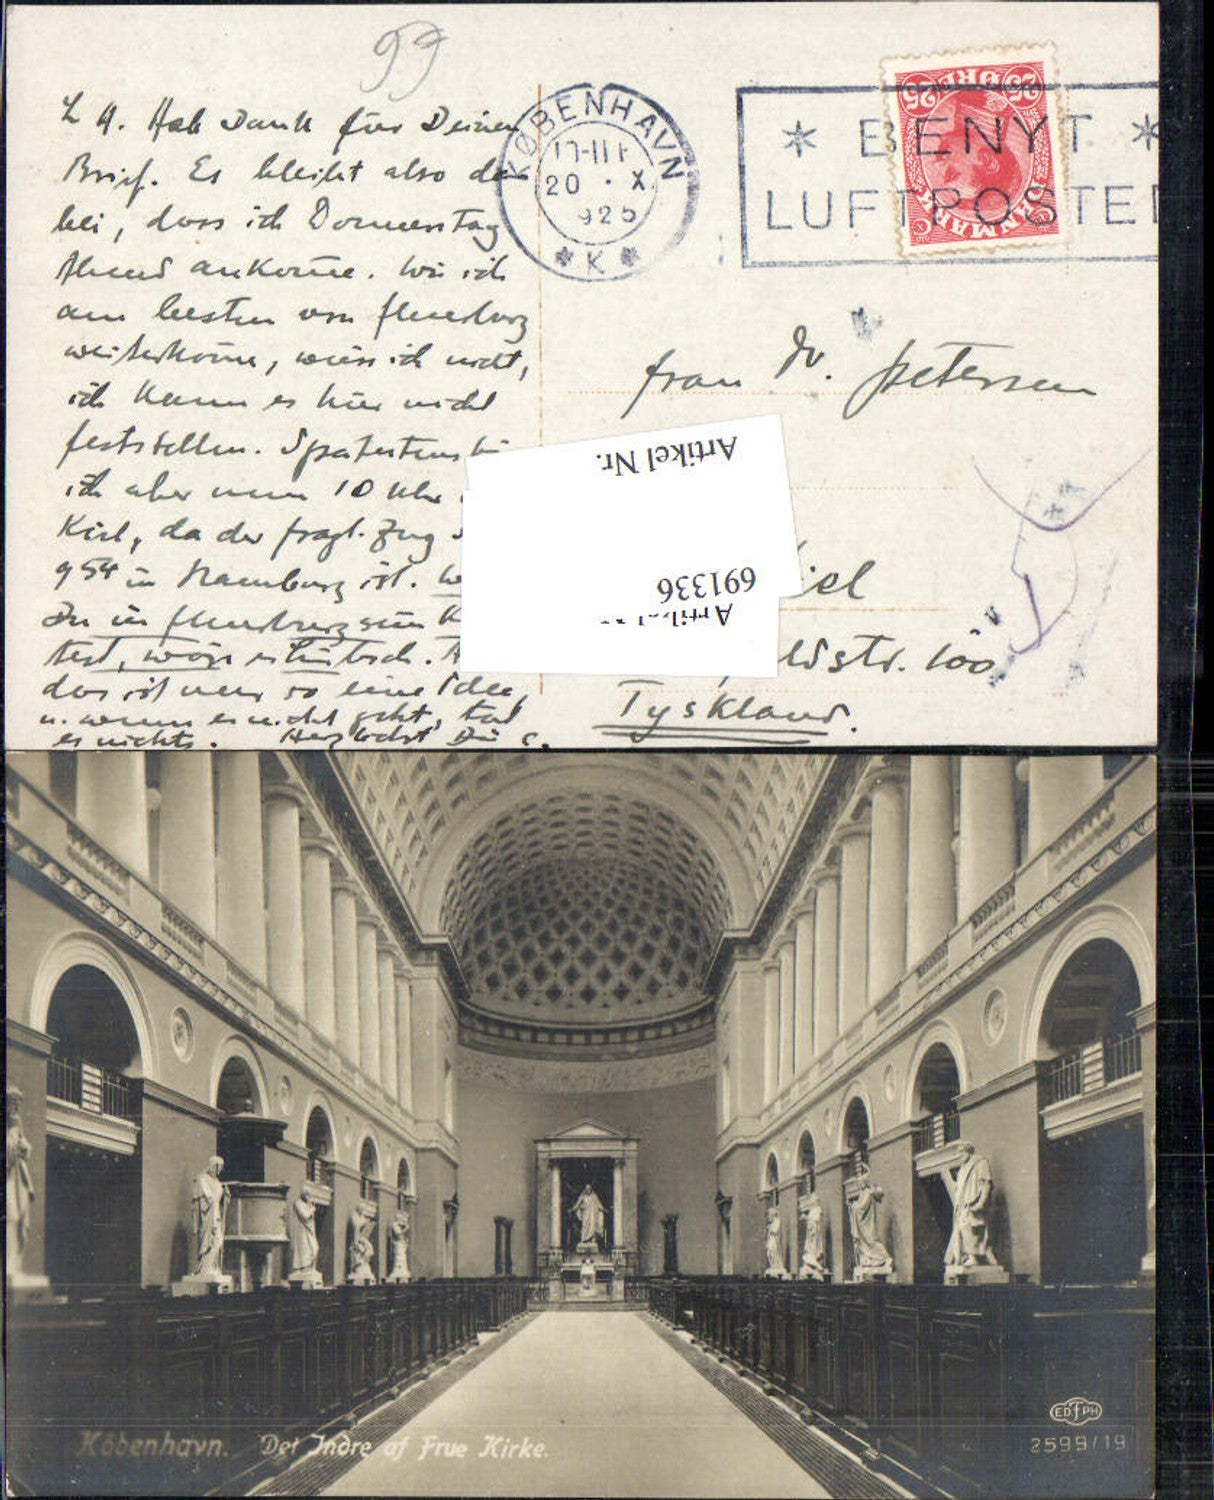 93
L H. Hab Dank für Deinen
Brief. Es bleibt also da
bei, dass ich Donnerstag
Abend ankome. Wie ich
am besten von Flensburg
weiterkome, weiss ich nicht,
ich kann es hier nicht
feststellen. Spätestens bin
ich aber um 10 Uhr
Kiel, da der fragl. Zug
954 in Hamburg ist.
Du in Flensburg sein
test, wäre es hübsch.
das ist nur so eine Idee,
u. wenn es nicht geht, tut
es nichts. Herzlichst Dein C.
KØBENHAVN
20 · X
925
* K *
* BENYT *
LUFTPOSTEN
25 ØRE 25
DANMARK
Frau Dr. Petersen
iel
ldstr. 100
Tyskland.
Artikel Nr.
691336
Artikel Nr.
Köbenhavn. Det Indre af Frue Kirke.
ED F PH
2599/19